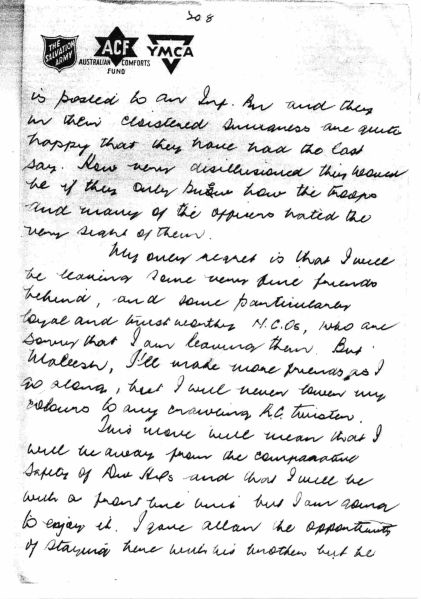 308
THE SALVATION ARMY
ACF
AUSTRALIAN COMFORTS FUND
YMCA
is posted to an Inf. Bn and they
in their cloistered smugness are quite
happy that they have had the last
say. How very disillusioned they would
be if they only knew how the troops
and many of the officers hated the
very sight of them.
My only regret is that I will
be leaving some very fine friends
behind, and some particularly
loyal and trustworthy N.C.Os, who are
sorry that I am leaving them. But
Maleesh, I'll make more friends as I
go along, but I will never lower my
colours to any crawling R.C. twister.
This move will mean that I
will be away from the comparative
safety of Div HQs and that I will be
with a front line unit but I am going
to enjoy it. I gave Allan the opportunity
of staying here with his brother but he